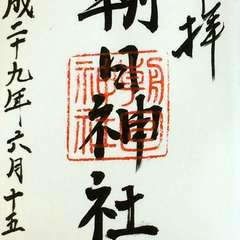 拝
朝日神社
成二十九年六月十五
朝日
神社